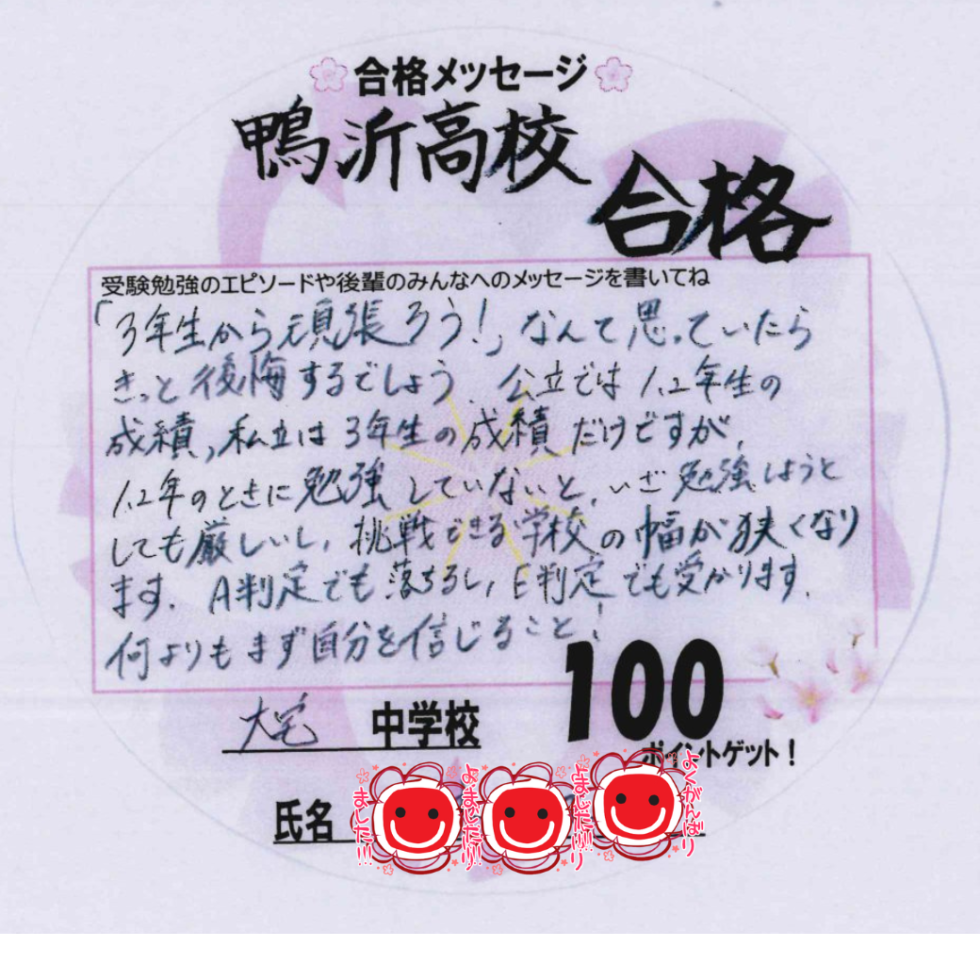 合格メッセージ
鴨沂高校
合格
受験勉強のエピソードや後輩のみんなへのメッセージを書いてね
「3年生から頑張ろう!」なんて思っていたら
きっと後悔するでしょう。公立では1.2年生の
成績,私立は3年生の成績だけですが,
1.2年のときに勉強していないと,いざ勉強しようと
しても厳しいし,挑戦できる学校の幅が狭くなり
ます.A判定でも落ちるし,E判定でも受かります.
何よりもまず自分を信じること!
100
ポイントゲット!
大宅 中学校
氏名
よくがんばり
ました!!